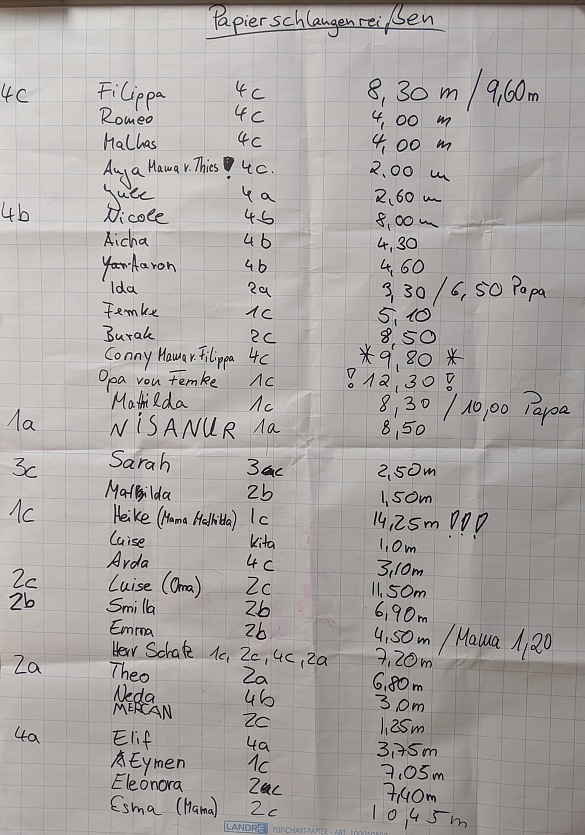 Papierschlangenreißen
4c Filippa 4c 8,30 m / 9,60m
Romeo 4c 4,00 m
Malhas 4c 4,00 m
Anja Mama v. Thies 4c. 2,00 m
Yule 4a 2,60 m
4b Nicole 4b 8,00 m
Aicha 4b 4,30
Yan-Aaron 4b 4,60
Ida 2a 3,30 / 6,50 Papa
Femke 1c 5,10
Burak 2c 8,50
Conny Mama v. Filippa 4c *9,80*
Opa von Femke 1c !12,30!
Mathilda 1c 8,30 / 10,00 Papa
1a NISANUR 1a 8,50
3c Sarah 3c 2,50m
Mathilda 2b 1,50m
1c Heike (Mama Mathilda) 1c 14,25m !!!
Luise Kita 1,0m
Arda 4c 3,10m
2c Luise (Oma) 2c 11,50m
2b Smilla 2b 6,90m
Emma 2b 4,50m / Mama 1,20
Herr Schatz 1c, 2c, 4c, 2a 7,20m
2a Theo 2a 6,80m
Neda 4b 3,0m
MERCAN 2c 1,25m
4a Elif 4a 3,75m
Eymen 1c 7,05m
Eleonora 2c 7,40m
Esma (Mama) 2c 10,45m
LANDRÉ FLIPCHART-PAPIER - ART.